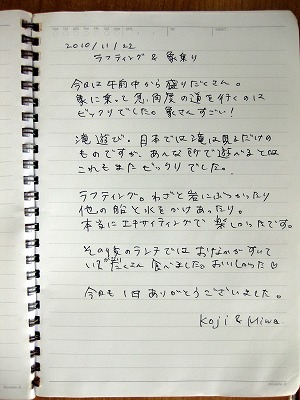 2010/11/22
ラフティング & 象乗り
今日は午前中から盛りだくさん。
象に乗って急角度の道を行くのは
ビックリでした。象さんすごい!
滝遊び。日本では滝は見るだけの
ものですが、あんな所で遊べるとは
これもまたビックリでした。
ラフティング。わざと岩にぶつかったり
他の船と水をかけあったり。
本当にエキサイティングで楽しかったです。
その後のランチではおなかがすいて
いてたくさん食べました。おいしかった
今日も1日ありがとうございました。
Koji & Miwa